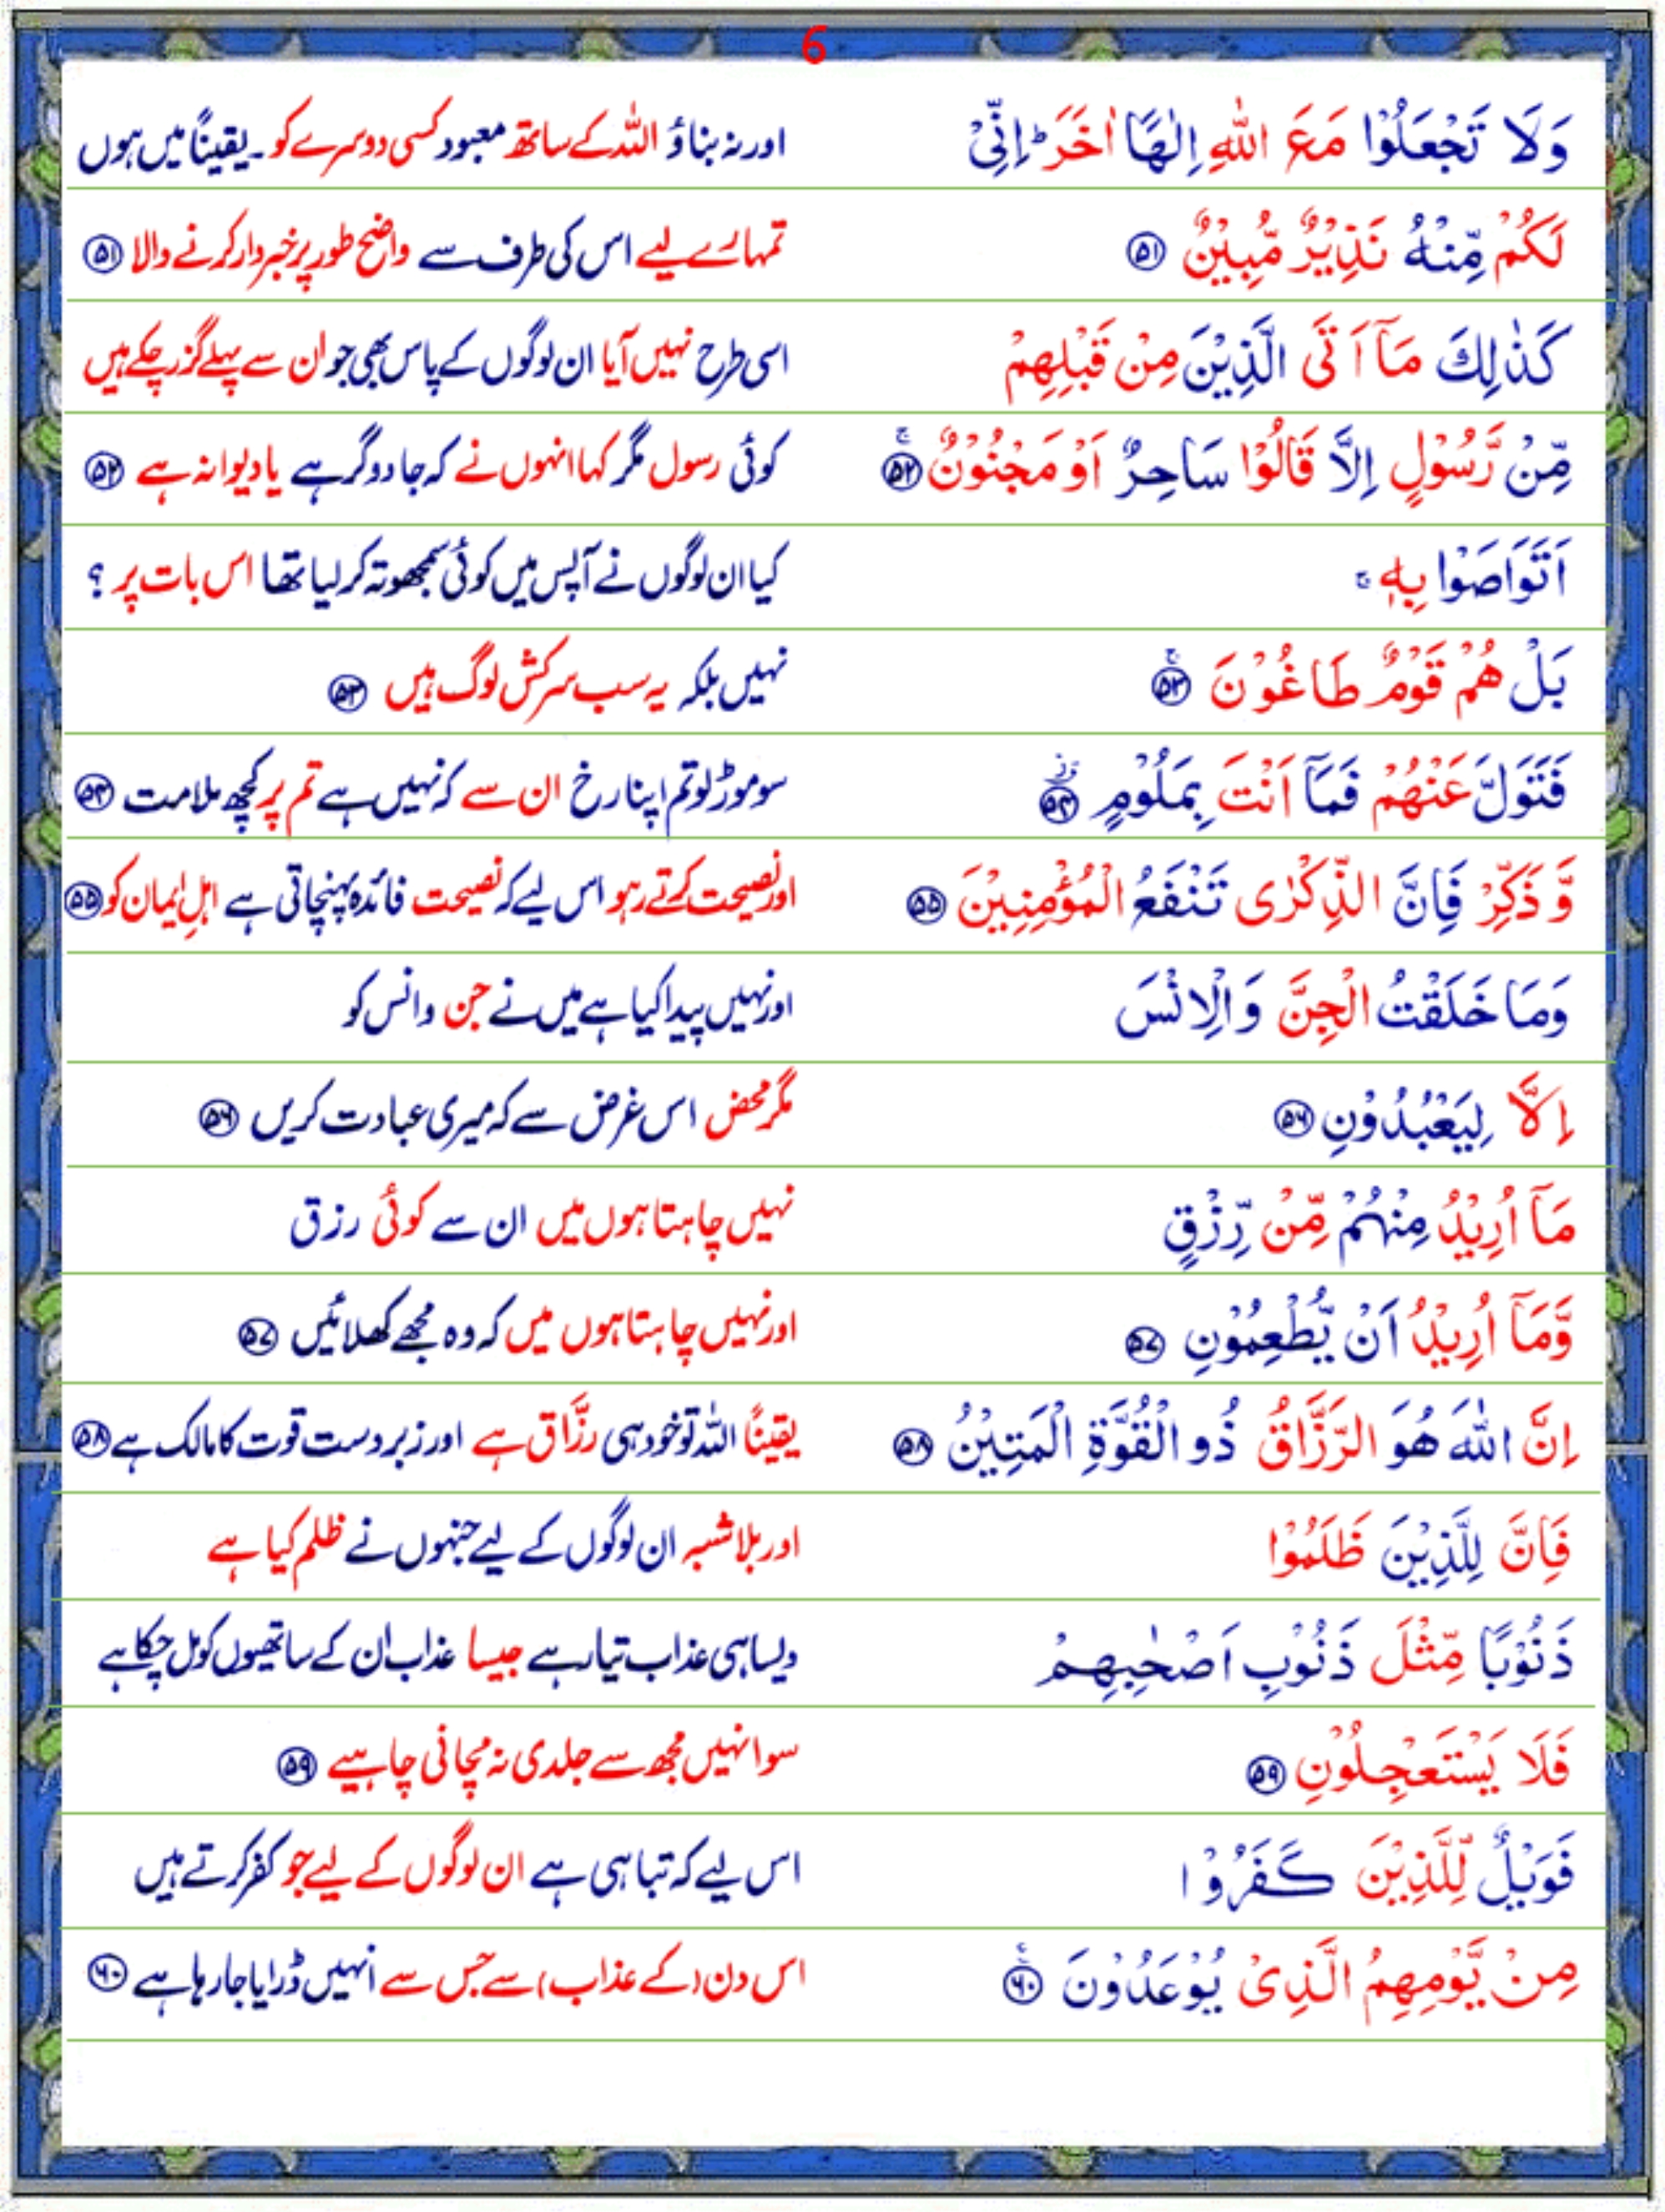 6
وَلَا تَجْعَلُوْا مَعَ اللّٰهِ اِلٰهًا اٰخَرَ ؕ اِنِّیْ اور نہ بناؤ اللہ کے ساتھ معبود کسی دوسرے کو۔ یقیناً میں ہوں
لَكُمْ مِّنْهُ نَذِیْرٌ مُّبِیْنٌ ۵۱ تمہارے لیے اس کی طرف سے واضح طور پر خبردار کرنے والا ۵۱
كَذٰلِكَ مَاۤ اَتَی الَّذِیْنَ مِنْ قَبْلِهِمْ اسی طرح نہیں آیا ان لوگوں کے پاس بھی جو ان سے پہلے گزر چکے ہیں
مِّنْ رَّسُوْلٍ اِلَّا قَالُوْا سَاحِرٌ اَوْ مَجْنُوْنٌ ۚ ۵۲ کوئی رسول مگر کہا انہوں نے کہ جادوگر ہے یا دیوانہ ہے ۵۲
اَتَوَاصَوْا بِهٖ ۚ کیا ان لوگوں نے آپس میں کوئی سمجھوتہ کر لیا تھا اس بات پر ؟
بَلْ هُمْ قَوْمٌ طَاغُوْنَ ۚ ۵۳ نہیں بلکہ یہ سب سرکش لوگ ہیں ۵۳
فَتَوَلَّ عَنْهُمْ فَمَاۤ اَنْتَ بِمَلُوْمٍ ۵۴ سو موڑ لو تم اپنا رخ ان سے کہ نہیں ہے تم پر کچھ ملامت ۵۴
وَّ ذَكِّرْ فَاِنَّ الذِّكْرٰی تَنْفَعُ الْمُؤْمِنِیْنَ ۵۵ اور نصیحت کرتے رہو اس لیے کہ نصیحت فائدہ پہنچاتی ہے اہلِ ایمان کو ۵۵
وَمَا خَلَقْتُ الْجِنَّ وَ الْاِنْسَ اور نہیں پیدا کیا ہے میں نے جن و انس کو
اِلَّا لِیَعْبُدُوْنِ ۵۶ مگر محض اس غرض سے کہ میری عبادت کریں ۵۶
مَاۤ اُرِیْدُ مِنْهُمْ مِّنْ رِّزْقٍ نہیں چاہتا ہوں میں ان سے کوئی رزق
وَّمَاۤ اُرِیْدُ اَنْ یُّطْعِمُوْنِ ۵۷ اور نہیں چاہتا ہوں میں کہ وہ مجھے کھلائیں ۵۷
اِنَّ اللّٰهَ هُوَ الرَّزَّاقُ ذُو الْقُوَّةِ الْمَتِیْنُ ۵۸ یقیناً اللہ تو خود ہی رزّاق ہے اور زبردست قوت کا مالک ہے ۵۸
فَاِنَّ لِلَّذِیْنَ ظَلَمُوْا اور بلاشبہ ان لوگوں کے لیے جنہوں نے ظلم کیا ہے
ذَنُوْبًا مِّثْلَ ذَنُوْبِ اَصْحٰبِهِمْ ویسا ہی عذاب تیار ہے جیسا عذاب ان کے ساتھیوں کو مل چکا ہے
فَلَا یَسْتَعْجِلُوْنِ ۵۹ سو انہیں مجھ سے جلدی نہ مچانی چاہیے ۵۹
فَوَیْلٌ لِّلَّذِیْنَ كَفَرُوْا اس لیے کہ تباہی ہے ان لوگوں کے لیے جو کفر کرتے ہیں
مِنْ یَّوْمِهِمُ الَّذِیْ یُوْعَدُوْنَ ۶۰ اس دن (کے عذاب) سے جس سے انہیں ڈرایا جا رہا ہے ۶۰